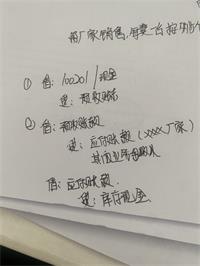 帮厂家销售,每卖一台按
① 借:100201/现金
贷:预收账款
② 借:预收账款
贷:应付账款(XXXX厂家)
其他业务收入
借:应付账款
贷:库存现金